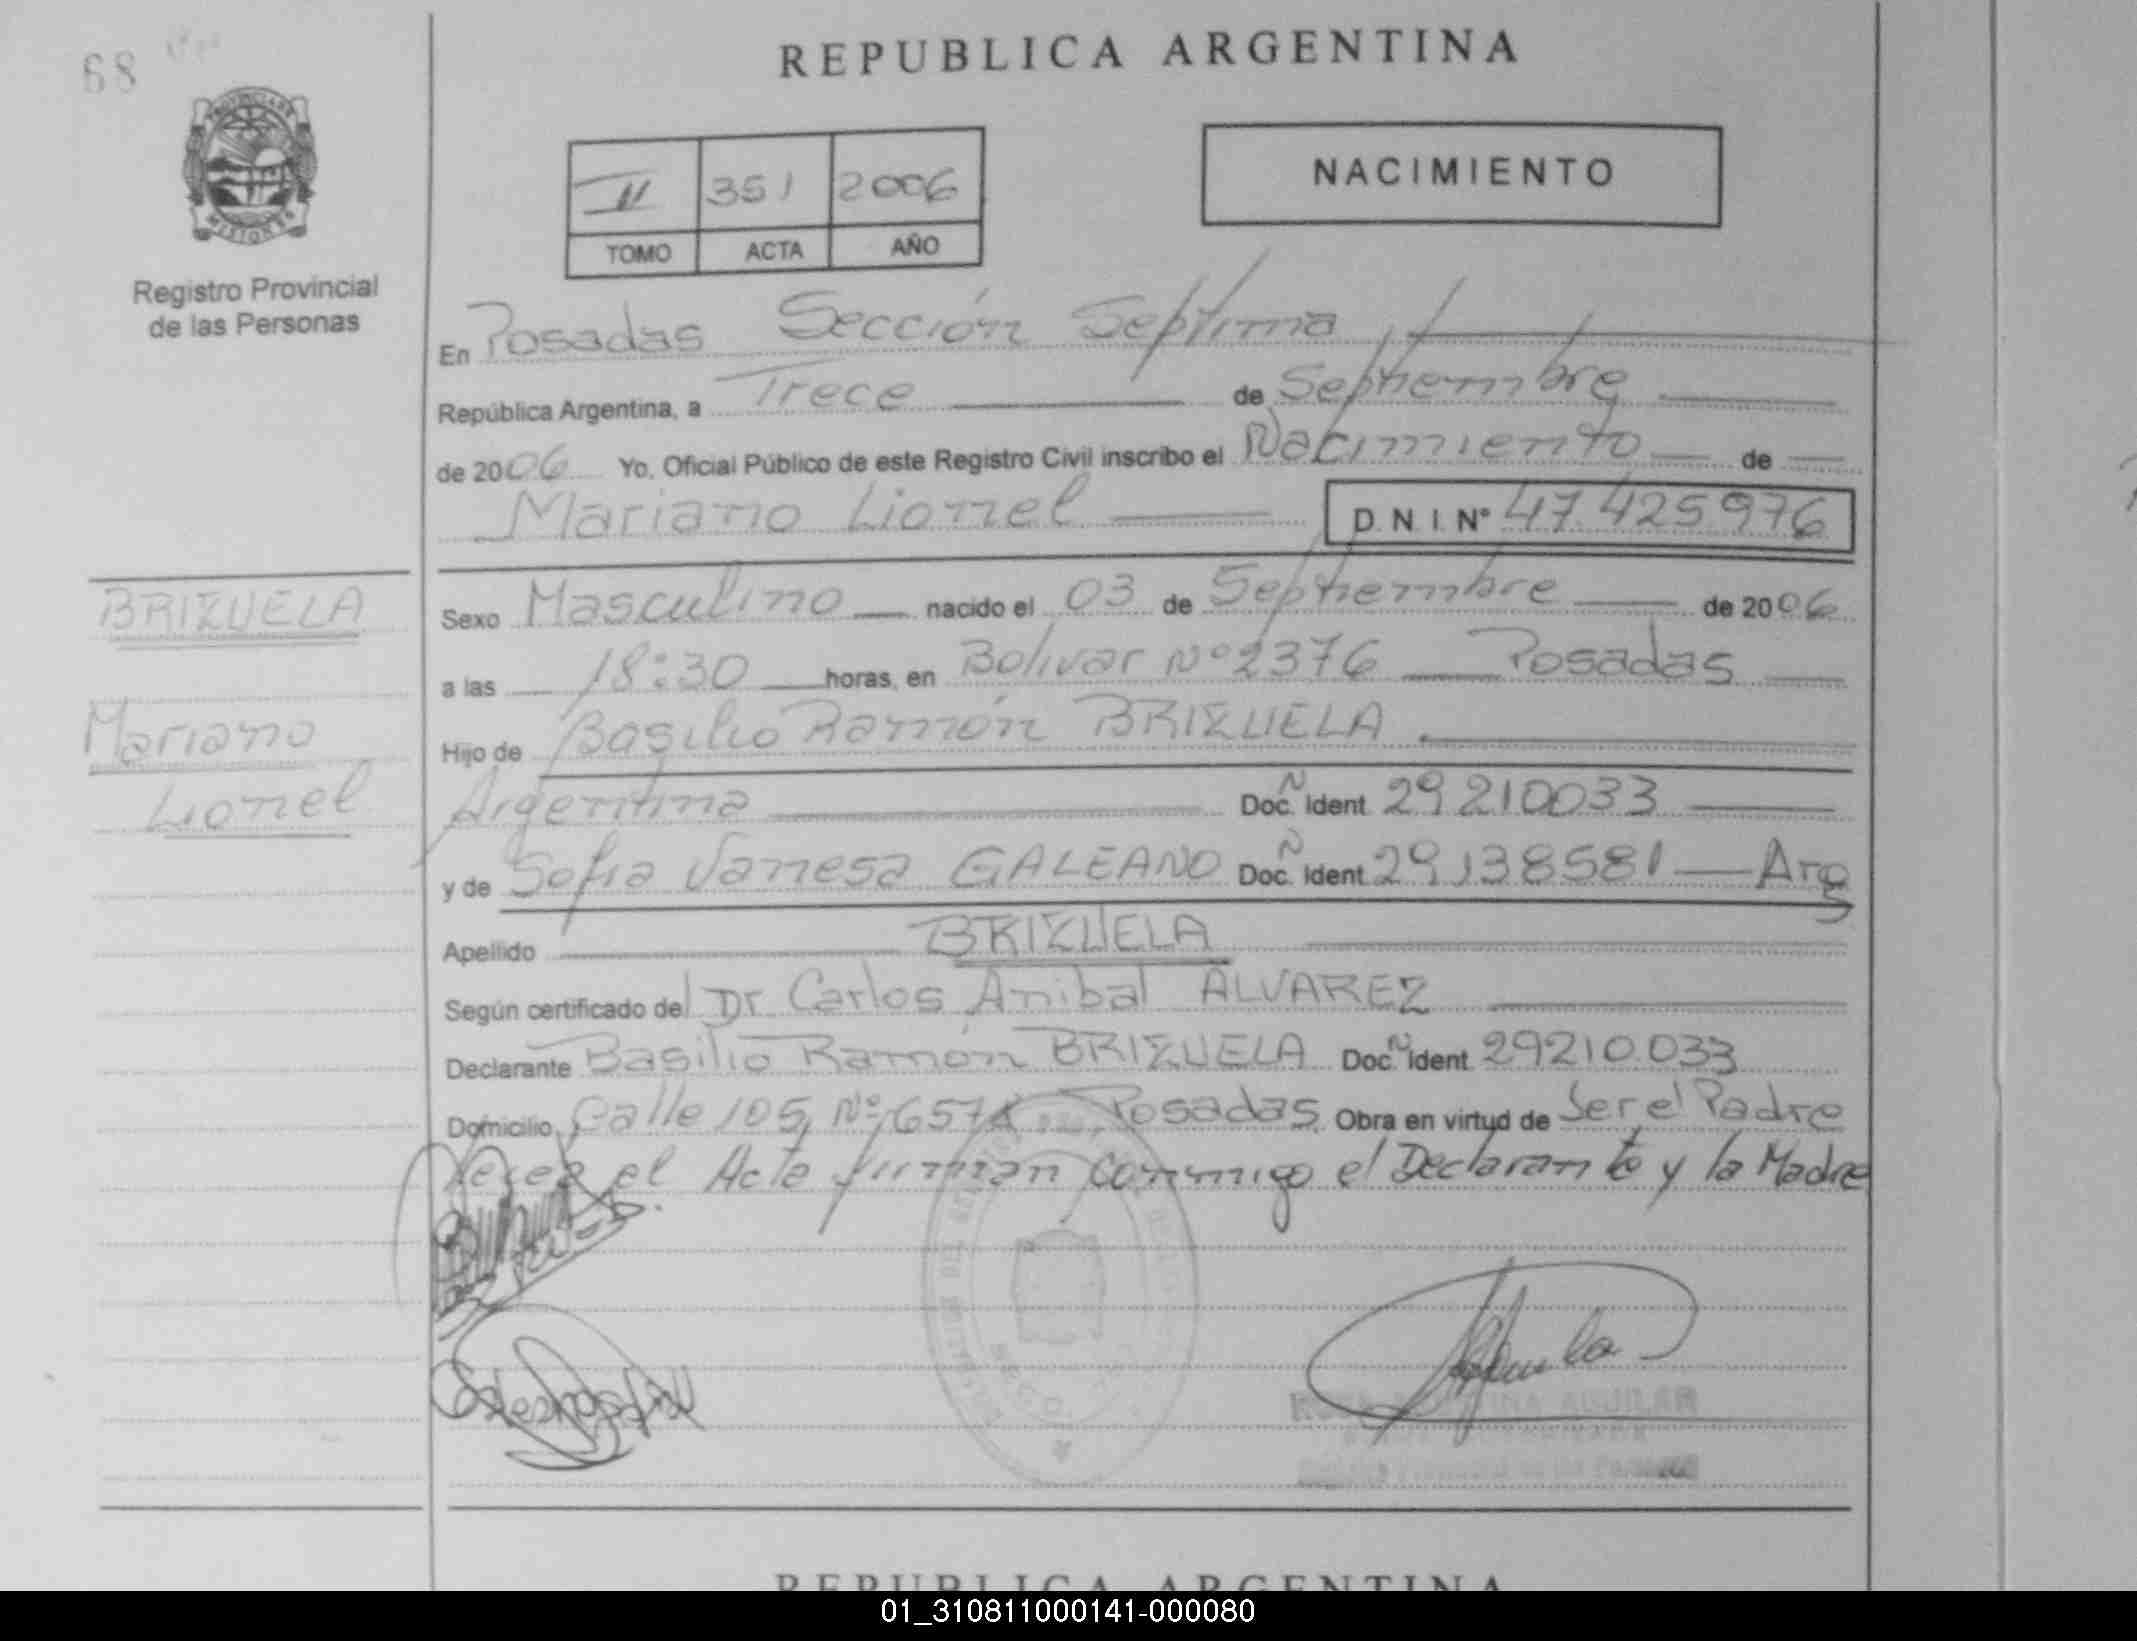 68
REPUBLICA ARGENTINA
PROVINCIA DE MISIONES
Registro Provincial
de las Personas
II 351 2006
TOMO ACTA AÑO
NACIMIENTO
En Posadas Sección Septima
República Argentina, a Trece de Septiembre
de 2006 Yo, Oficial Público de este Registro Civil inscribo el Nacimiento de
Mariano Lionel D.N.I. Nº 47.425976
BRIZUELA
Mariano
Lionel
Sexo Masculino nacido el 03 de Septiembre de 2006
a las 18:30 horas, en Bolivar Nº 2376 Posadas
Hijo de Basilio Ramón BRIZUELA
Argentina Doc. Ñ Ident 29210033
y de Sofia Vanesa GALEANO Doc. Ñ Ident 29138581 Arg
Apellido BRIZUELA
Según certificado del Dr Carlos Anibal ALVAREZ
Declarante Basilio Ramón BRIZUELA Doc. Ñ Ident 29210.033
Domicilio Calle 105, Nº 6574 Posadas. Obra en virtud de Ser el Padre
el Acta firman conmigo el Declarante y la Madre
AGUILAR
REPUBLICA ARGENTINA
01_310811000141-000080